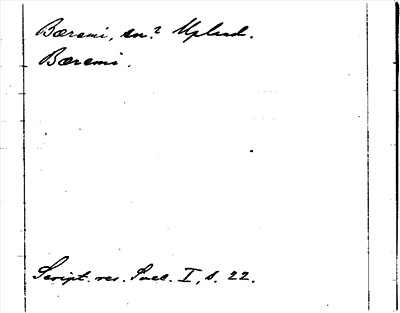 Bœremi, sn.? Upland.
Bœremi.
Script. res. Suec. I, s. 22.